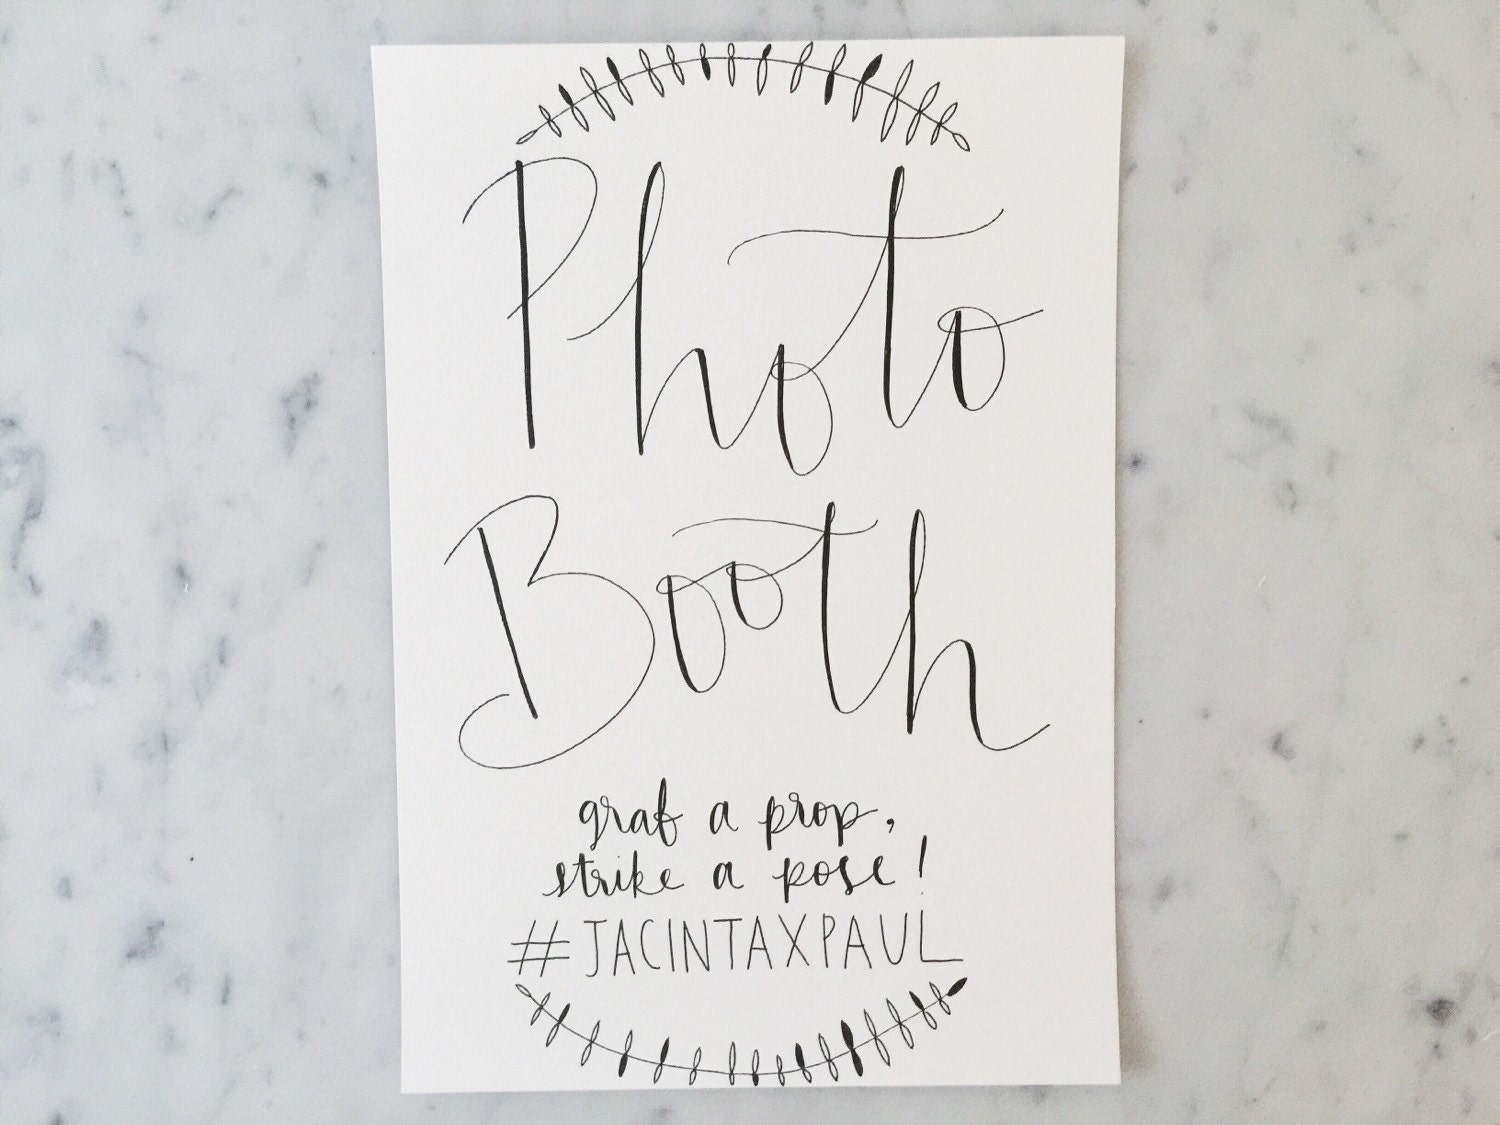 Photo
Booth
grab a prop,
strike a pose!
#JACINTAXPAUL